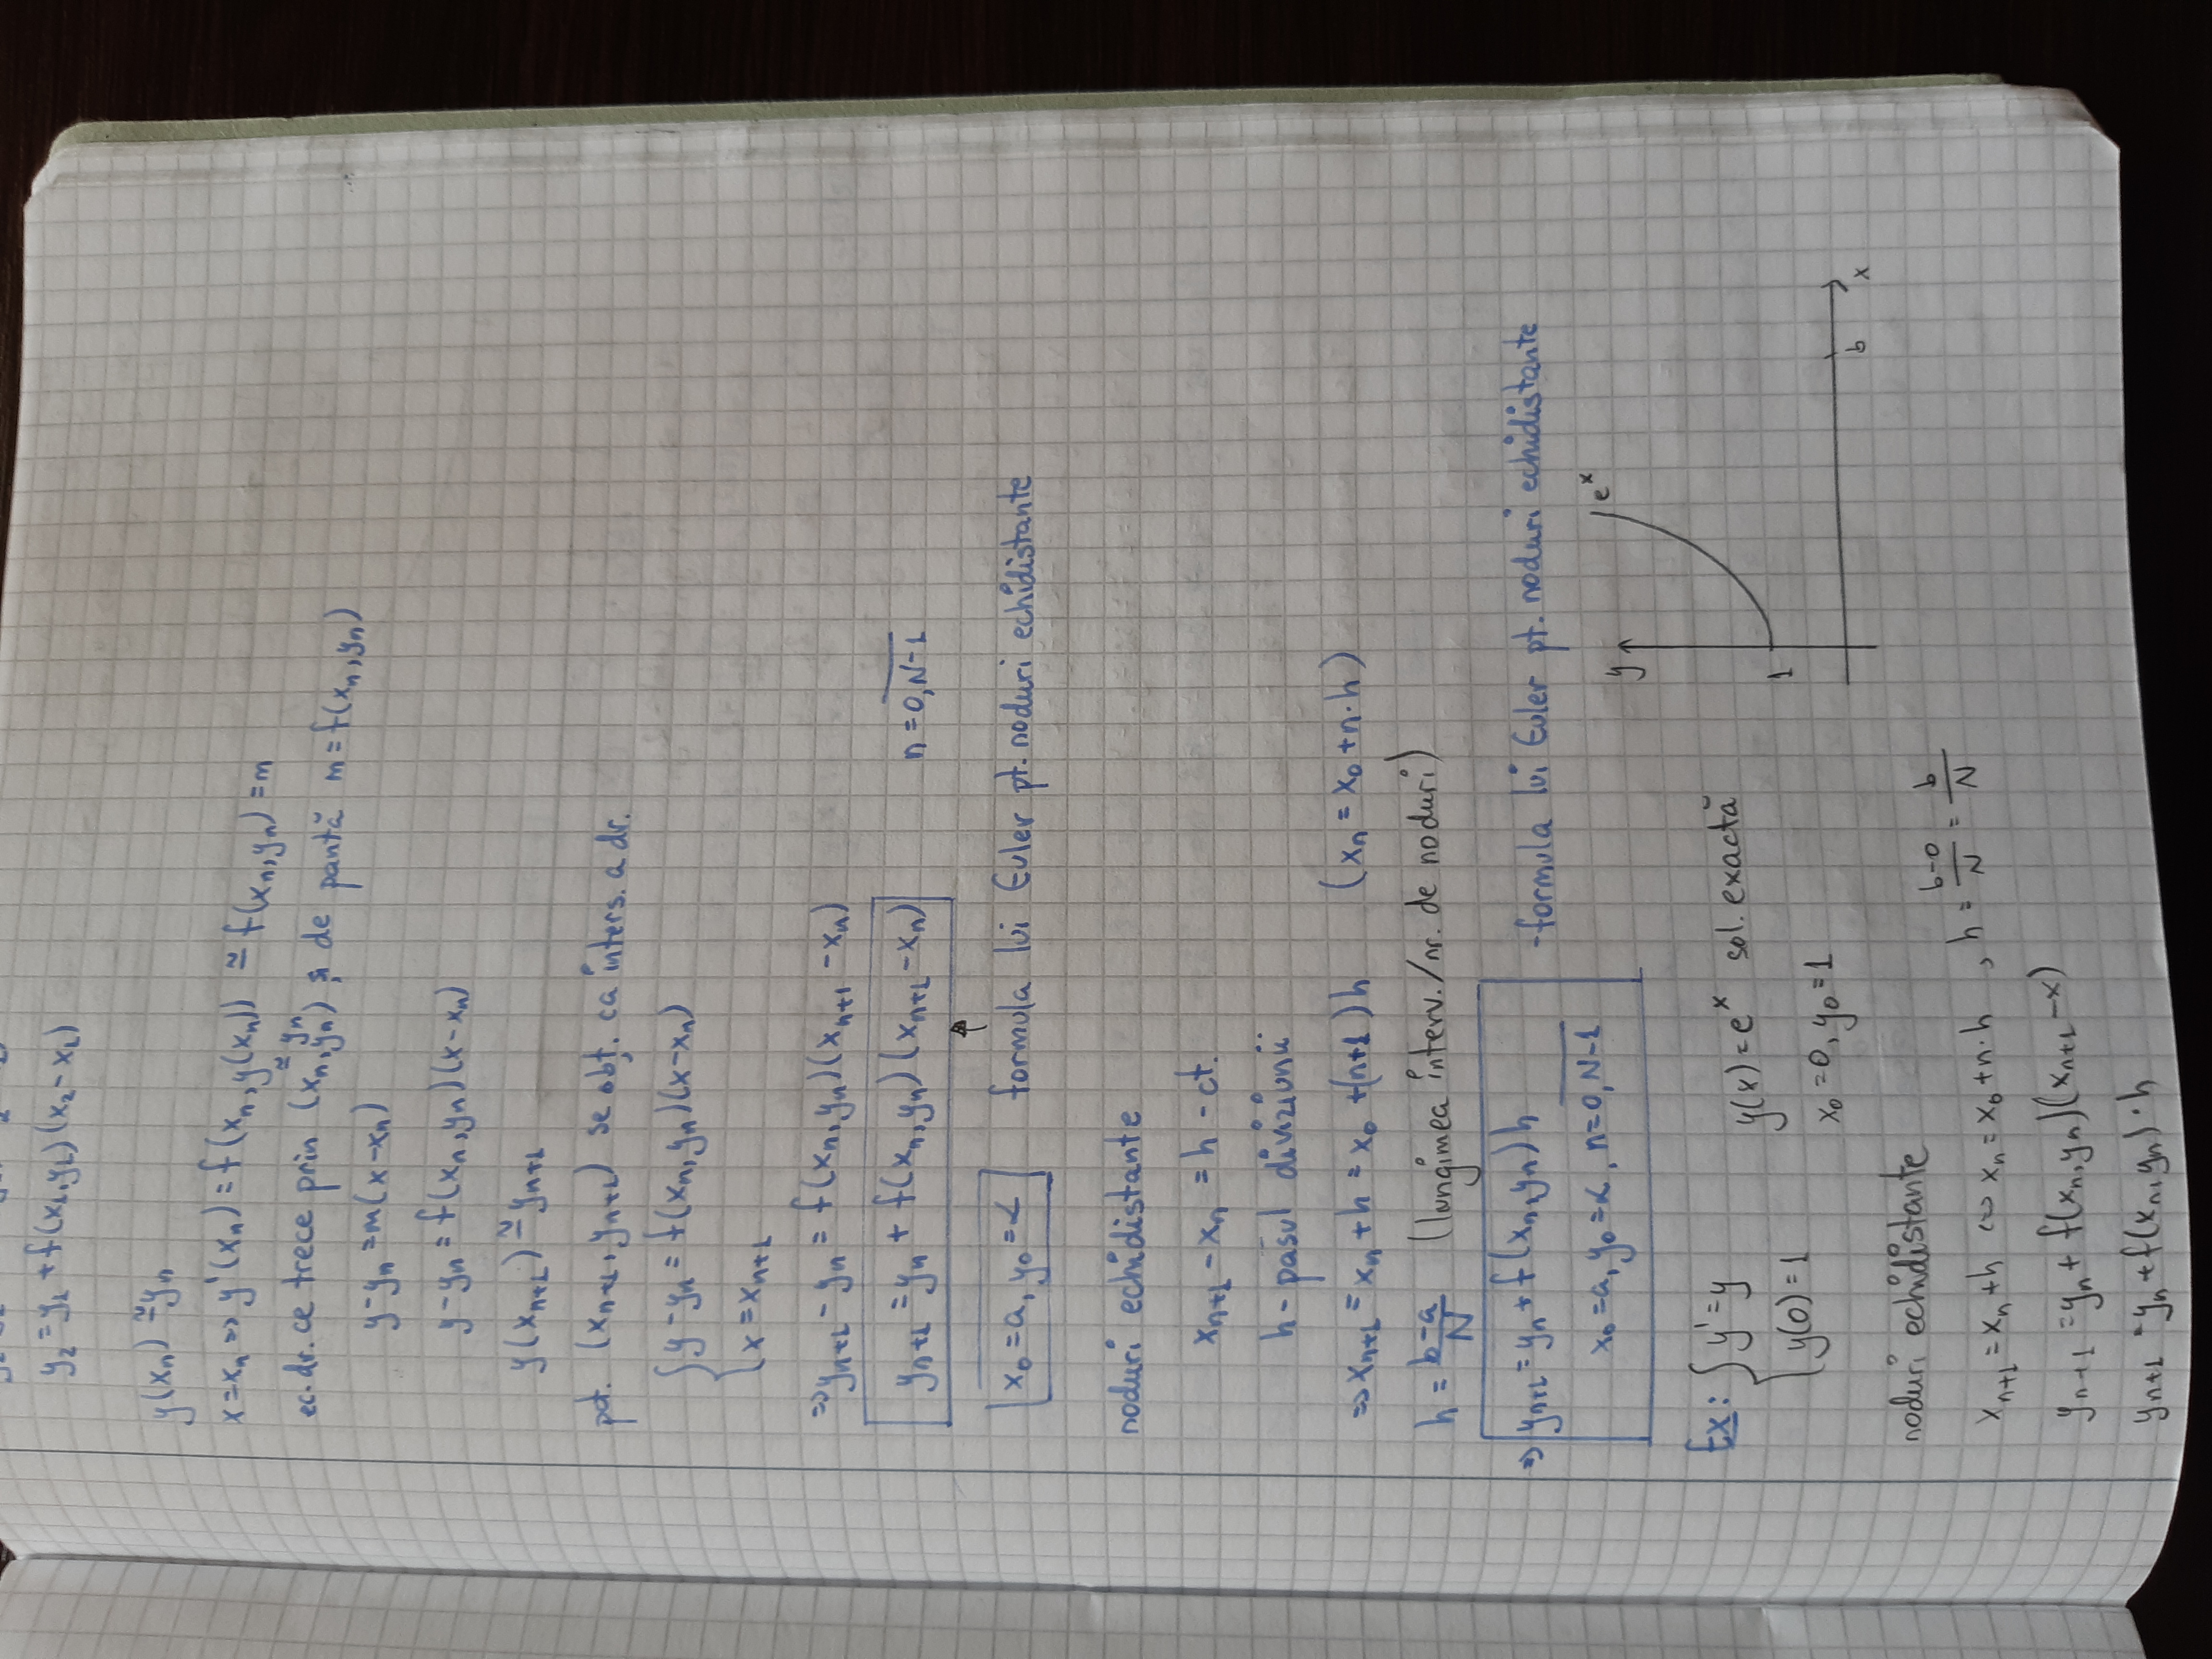 y₂ = y₁ + f(x₁,y₁)(x₂ - x₁)
y(xₙ) ≅ yₙ
x = xₙ ⇒ y'(xₙ) = f(xₙ, y(xₙ)) ≅ f(xₙ,yₙ) = m
≅ yₙ
ec. dr. ce trece prin (xₙ,yₙ) și de pantă m = f(xₙ,yₙ)
y - yₙ = m(x - xₙ)
y - yₙ = f(xₙ,yₙ)(x - xₙ)
y(xₙ₊₁) ≅ yₙ₊₁
pct. (xₙ₊₁, yₙ₊₁) se obț. ca inters. a dr.
{ y - yₙ = f(xₙ,yₙ)(x - xₙ)
x = xₙ₊₁
⇒ yₙ₊₁ - yₙ = f(xₙ,yₙ)(xₙ₊₁ - xₙ)
yₙ₊₁ = yₙ + f(xₙ,yₙ)(xₙ₊₁ - xₙ) n = 0,N-1
x₀ = a, y₀ = α formula lui Euler pt. noduri echidistante
noduri echidistante
xₙ₊₁ - xₙ = h - ct.
h - pasul diviziunii
⇒ xₙ₊₁ = xₙ + h = x₀ + (n+1)h (xₙ = x₀ + n·h)
h = (b-a)/N (lungimea interv./nr. de noduri)
⇒ yₙ₊₁ = yₙ + f(xₙ,yₙ)h - formula lui Euler pt. noduri echidistante
x₀ = a, y₀ = α, n = 0,N-1
y eˣ
Ex: { y' = y y(x) = eˣ sol. exactă
y(0) = 1 x₀ = 0, y₀ = 1
1
b x
noduri echidistante
xₙ₊₁ = xₙ + h ⇔ xₙ = x₀ + n·h , h = (b-0)/N = b/N
yₙ₊₁ = yₙ + f(xₙ,yₙ)(xₙ₊₁ - x)
yₙ₊₁ = yₙ + f(xₙ,yₙ)·h